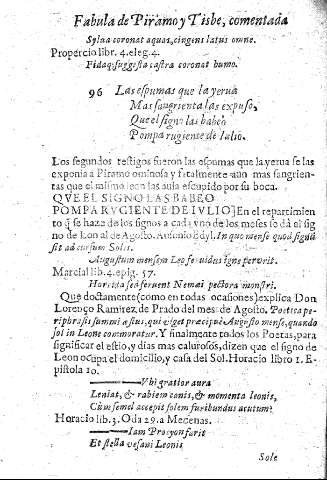 Fabula de Piramo y Tisbe, comentada
Sylua coronat aquas, cingens latus omne.
Propercio libr. 4. eleg. 4.
Fidaq; suggesta castra coronat humo.
96 Las espumas que la yerua
Mas sangrienta las expuso,
Que el signo las babeò
Pompa rugiente de Iulio.
Los segundos testigos fueron las espumas que la yerua se las
exponia à Piramo ominosa y fatalmente aun mas sangrien-
tas que el mismo leon las auia escupido por su boca.
QVE EL SIGNO LAS BABEO
POMPA RVGIENTE DE IVLIO] En el repartimiento
q̃ se haza de los signos a cada vno de los meses se dà el sig
no de Leon al de Agosto. Antonio Edyl. In quo mense quod signũ
sit ad cursum Solis.
Augustum mensem Leo feruidus igne perurit.
Marcial lib. 4. epig. 57.
Horrida sed feruent Nemei pectora monstri.
Que doctamente (como en todas ocasiones) explica Don
Lorenço Ramirez de Prado del mes de Agosto. Poetica pe-
riphrasis summi æstus, qui viget præcipuè Augusto mense, quando
sol in Leone commoratur. Y finalmente todos los Poetas, para
significar el estio, y dias mas calurosos, dizen que el signo de
Leon ocupa el domicilio, y casa del Sol. Horacio libro 1. E-
pistola 10.
Vbi gratior aura
Leniat, & rabiem canis, & momenta leonis,
Cùm semel accepit solem furibundus acutum?
Horacio lib. 3. Oda 29. a Mecenas.
Iam Procyon furit
Et stella vesani Leonis
Sole